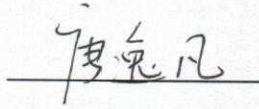 唐逸凡